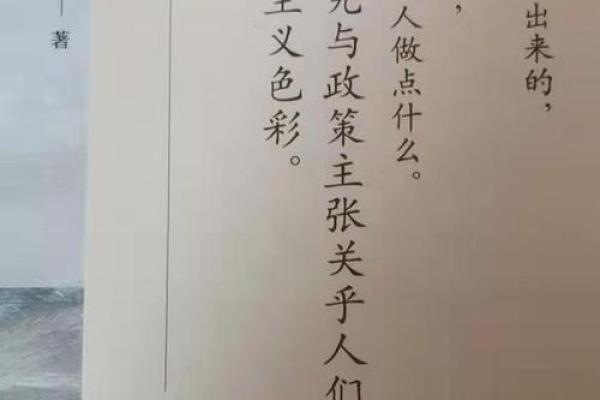 出来的，
，
人做点什么。
与政策主张关乎人们
主义色彩。
著